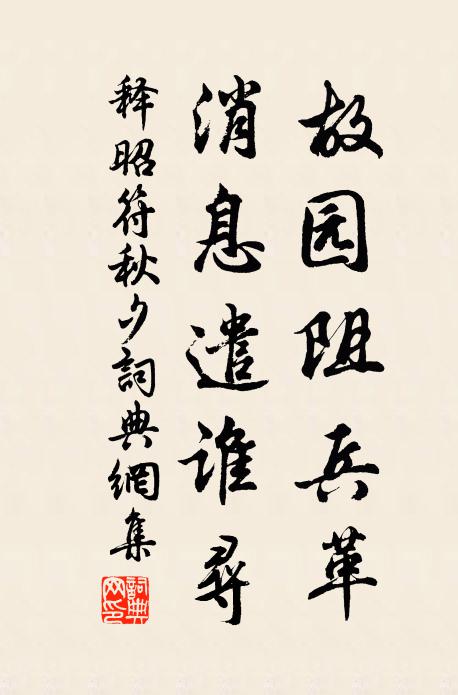 故园阻兵革
消息遣谁寻
释昭符秋夕詞典網集
詞典网印